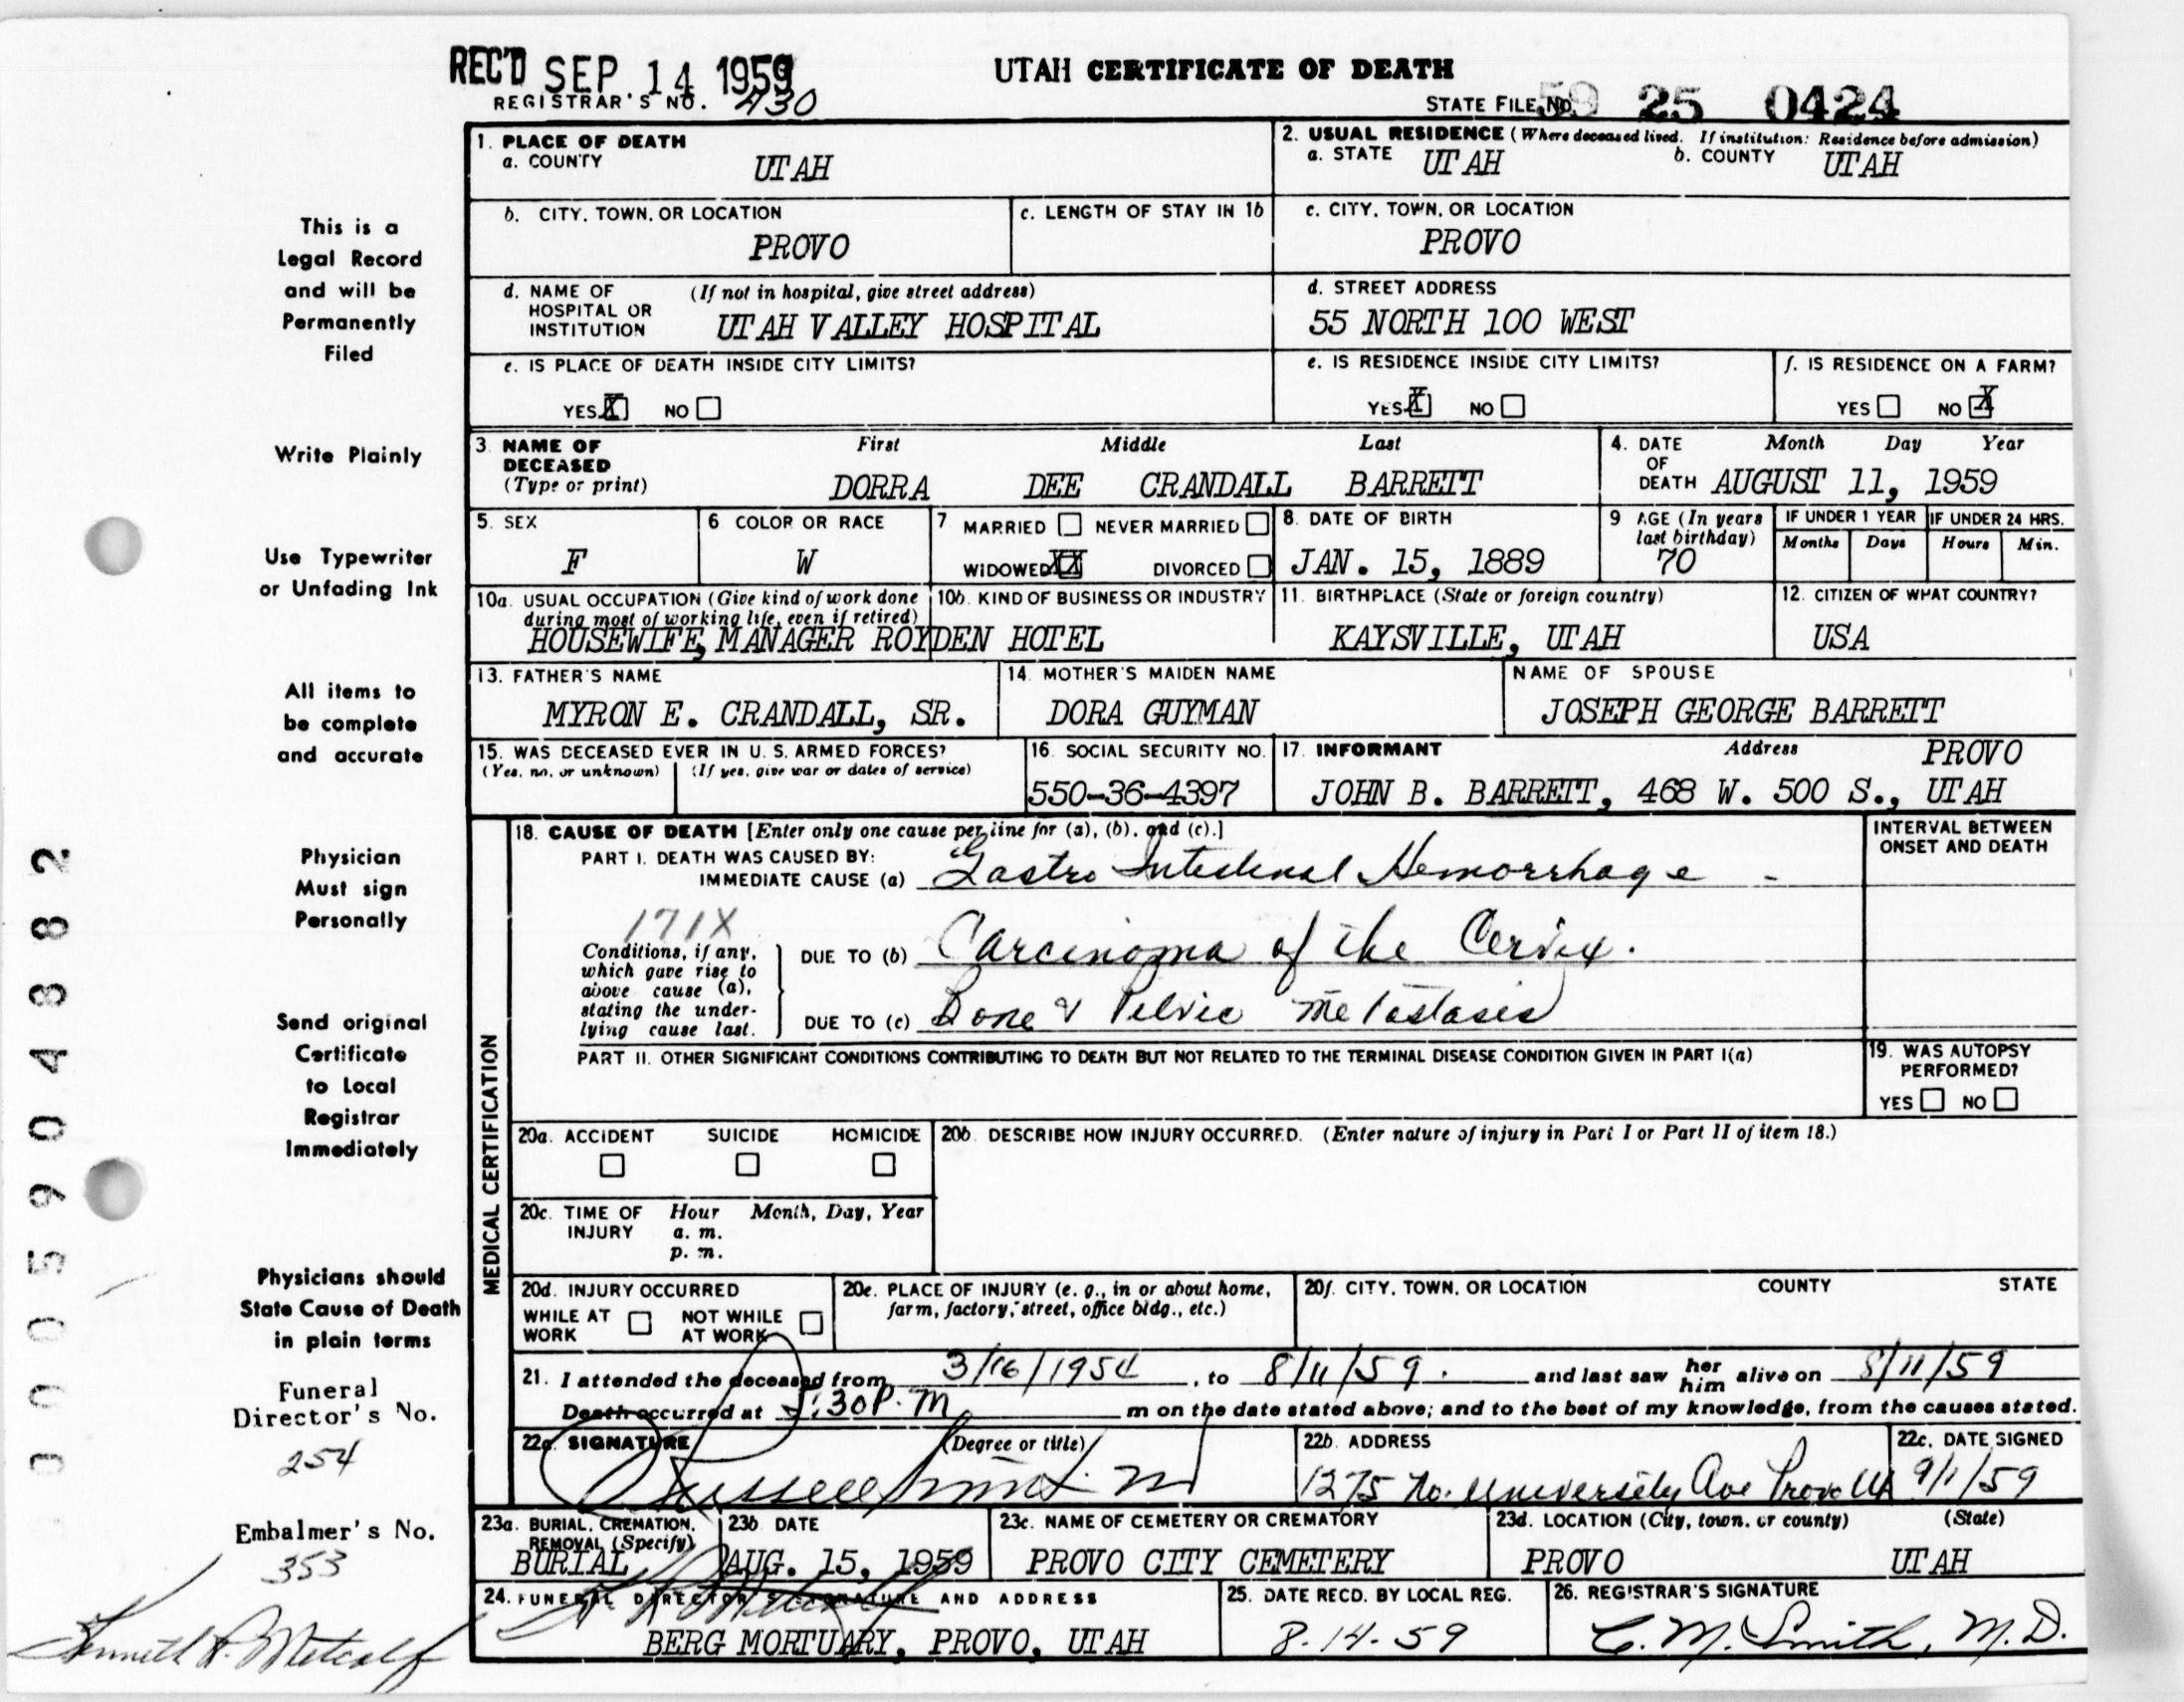 REC'D SEP. 14 1959
UTAH CERTIFICATE OF DEATH
REGISTRAR'S NO. 430
STATE FILE NO. 59 25 0424
1. PLACE OF DEATH
a. COUNTY UTAH
2. USUAL RESIDENCE (Where deceased lived. If institution: Residence before admission)
a. STATE UTAH b. COUNTY UTAH
b. CITY, TOWN, OR LOCATION
PROVO
c. LENGTH OF STAY IN 1b
c. CITY, TOWN, OR LOCATION
PROVO
d. NAME OF HOSPITAL OR INSTITUTION (If not in hospital, give street address)
UTAH VALLEY HOSPITAL
d. STREET ADDRESS
55 NORTH 100 WEST
e. IS PLACE OF DEATH INSIDE CITY LIMITS?
YES X NO
e. IS RESIDENCE INSIDE CITY LIMITS?
YES X NO
f. IS RESIDENCE ON A FARM?
YES NO X
3. NAME OF DECEASED (Type or print)
First Middle Last
DORRA DEE CRANDALL BARRETT
4. DATE OF DEATH Month Day Year
AUGUST 11, 1959
5. SEX
F
6 COLOR OR RACE
W
7 MARRIED NEVER MARRIED
WIDOWED XX DIVORCED
8. DATE OF BIRTH
JAN. 15, 1889
9 AGE (In years last birthday)
70
IF UNDER 1 YEAR
Months Days
IF UNDER 24 HRS.
Hours Min.
10a. USUAL OCCUPATION (Give kind of work done during most of working life, even if retired)
10b. KIND OF BUSINESS OR INDUSTRY
HOUSEWIFE, MANAGER ROYDEN HOTEL
11. BIRTHPLACE (State or foreign country)
KAYSVILLE, UTAH
12. CITIZEN OF WHAT COUNTRY?
USA
13. FATHER'S NAME
MYRON E. CRANDALL, SR.
14. MOTHER'S MAIDEN NAME
DORA GUYMAN
NAME OF SPOUSE
JOSEPH GEORGE BARRETT
15. WAS DECEASED EVER IN U. S. ARMED FORCES?
(Yes, no, or unknown) (If yes, give war or dates of service)
16. SOCIAL SECURITY NO.
550-36-4397
17. INFORMANT Address
JOHN B. BARRETT, 468 W. 500 S., PROVO UTAH
MEDICAL CERTIFICATION
18. CAUSE OF DEATH [Enter only one cause per line for (a), (b), and (c).]
INTERVAL BETWEEN ONSET AND DEATH
PART I. DEATH WAS CAUSED BY:
IMMEDIATE CAUSE (a) Gastro Intestinal Hemorrhage -
171X
Conditions, if any, which gave rise to above cause (a), stating the underlying cause last.
DUE TO (b) Carcinoma of the Cervix.
DUE TO (c) Bone & Pelvic Metastasis
PART II. OTHER SIGNIFICANT CONDITIONS CONTRIBUTING TO DEATH BUT NOT RELATED TO THE TERMINAL DISEASE CONDITION GIVEN IN PART I(a)
19. WAS AUTOPSY PERFORMED?
YES NO
20a. ACCIDENT SUICIDE HOMICIDE
20b. DESCRIBE HOW INJURY OCCURRED. (Enter nature of injury in Part I or Part II of item 18.)
20c. TIME OF INJURY Hour Month, Day, Year
a. m.
p. m.
20d. INJURY OCCURRED
WHILE AT WORK NOT WHILE AT WORK
20e. PLACE OF INJURY (e. g., in or about home, farm, factory, street, office bldg., etc.)
20f. CITY, TOWN, OR LOCATION COUNTY STATE
21. I attended the deceased from 3/16/1954, to 8/11/59. and last saw her him alive on 8/11/59
Death occurred at 5:30 P.M. m on the date stated above; and to the best of my knowledge, from the causes stated.
22a. SIGNATURE (Degree or title)
Russell Smith M
22b. ADDRESS
1275 No. University Ave Provo Ut
22c. DATE SIGNED
9/1/59
23a. BURIAL, CREMATION, REMOVAL (Specify)
BURIAL
23b DATE
AUG. 15, 1959
23c. NAME OF CEMETERY OR CREMATORY
PROVO CITY CEMETERY
23d. LOCATION (City, town, or county) (State)
PROVO UTAH
24. FUNERAL DIRECTOR'S SIGNATURE AND ADDRESS
BERG MORTUARY, PROVO, UTAH
25. DATE RECD. BY LOCAL REG.
8-14-59
26. REGISTRAR'S SIGNATURE
C. M. Smith, M.D.
This is a
Legal Record
and will be
Permanently
Filed
Write Plainly
Use Typewriter
or Unfading Ink
All items to
be complete
and accurate
Physician
Must sign
Personally
Send original
Certificate
to Local
Registrar
Immediately
Physicians should
State Cause of Death
in plain terms
Funeral
Director's No.
254
Embalmer's No.
353
Kenneth R. Metcalf
0005904882